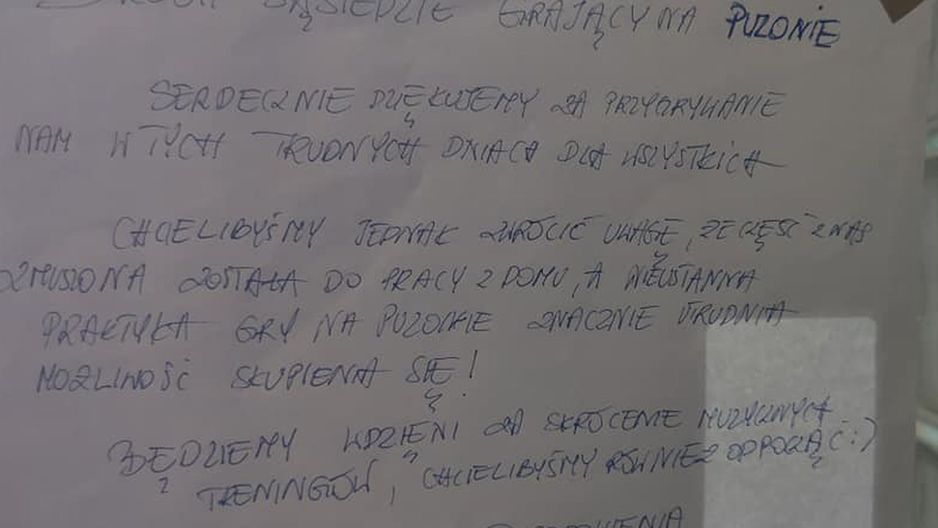 DROGI SĄSIEDZIE GRAJĄCY NA PUZONIE
SERDECZNIE DZIĘKUJEMY ZA PRZYGRYWANIE
NAM W TYCH TRUDNYCH DNIACH DLA WSZYSTKICH
CHCIELIBYŚMY JEDNAK ZWRÓCIĆ UWAGĘ, ŻE CZĘŚĆ Z NAS
ZMUSZONA ZOSTAŁA DO PRACY Z DOMU, A NIEUSTANNA
PRAKTYKA GRY NA PUZONIE ZNACZNIE UTRUDNIA
MOŻLIWOŚĆ SKUPIENIA SIĘ!
BĘDZIEMY WDZIĘNI ZA SKRÓCENIE MUZYCZNYCH
TRENINGÓW, CHCIELIBYŚMY RÓWNIEŻ ODPOCZĄĆ :)
POZDROWIENIA